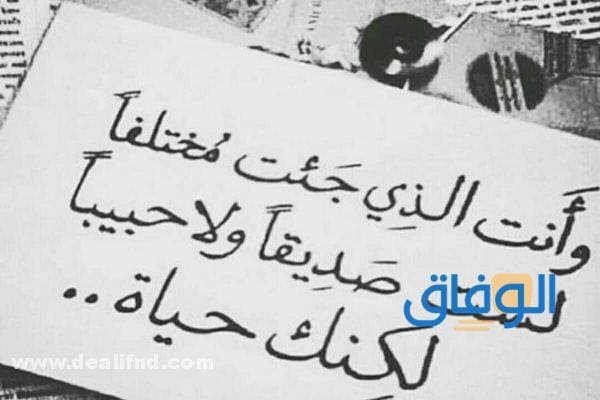 وأَنت الذِي جَئت مُختلفاً
لست صَدِيقاً ولا حبيباً
لكِنك حياة ..
الوفاق
www.dealifnd.com